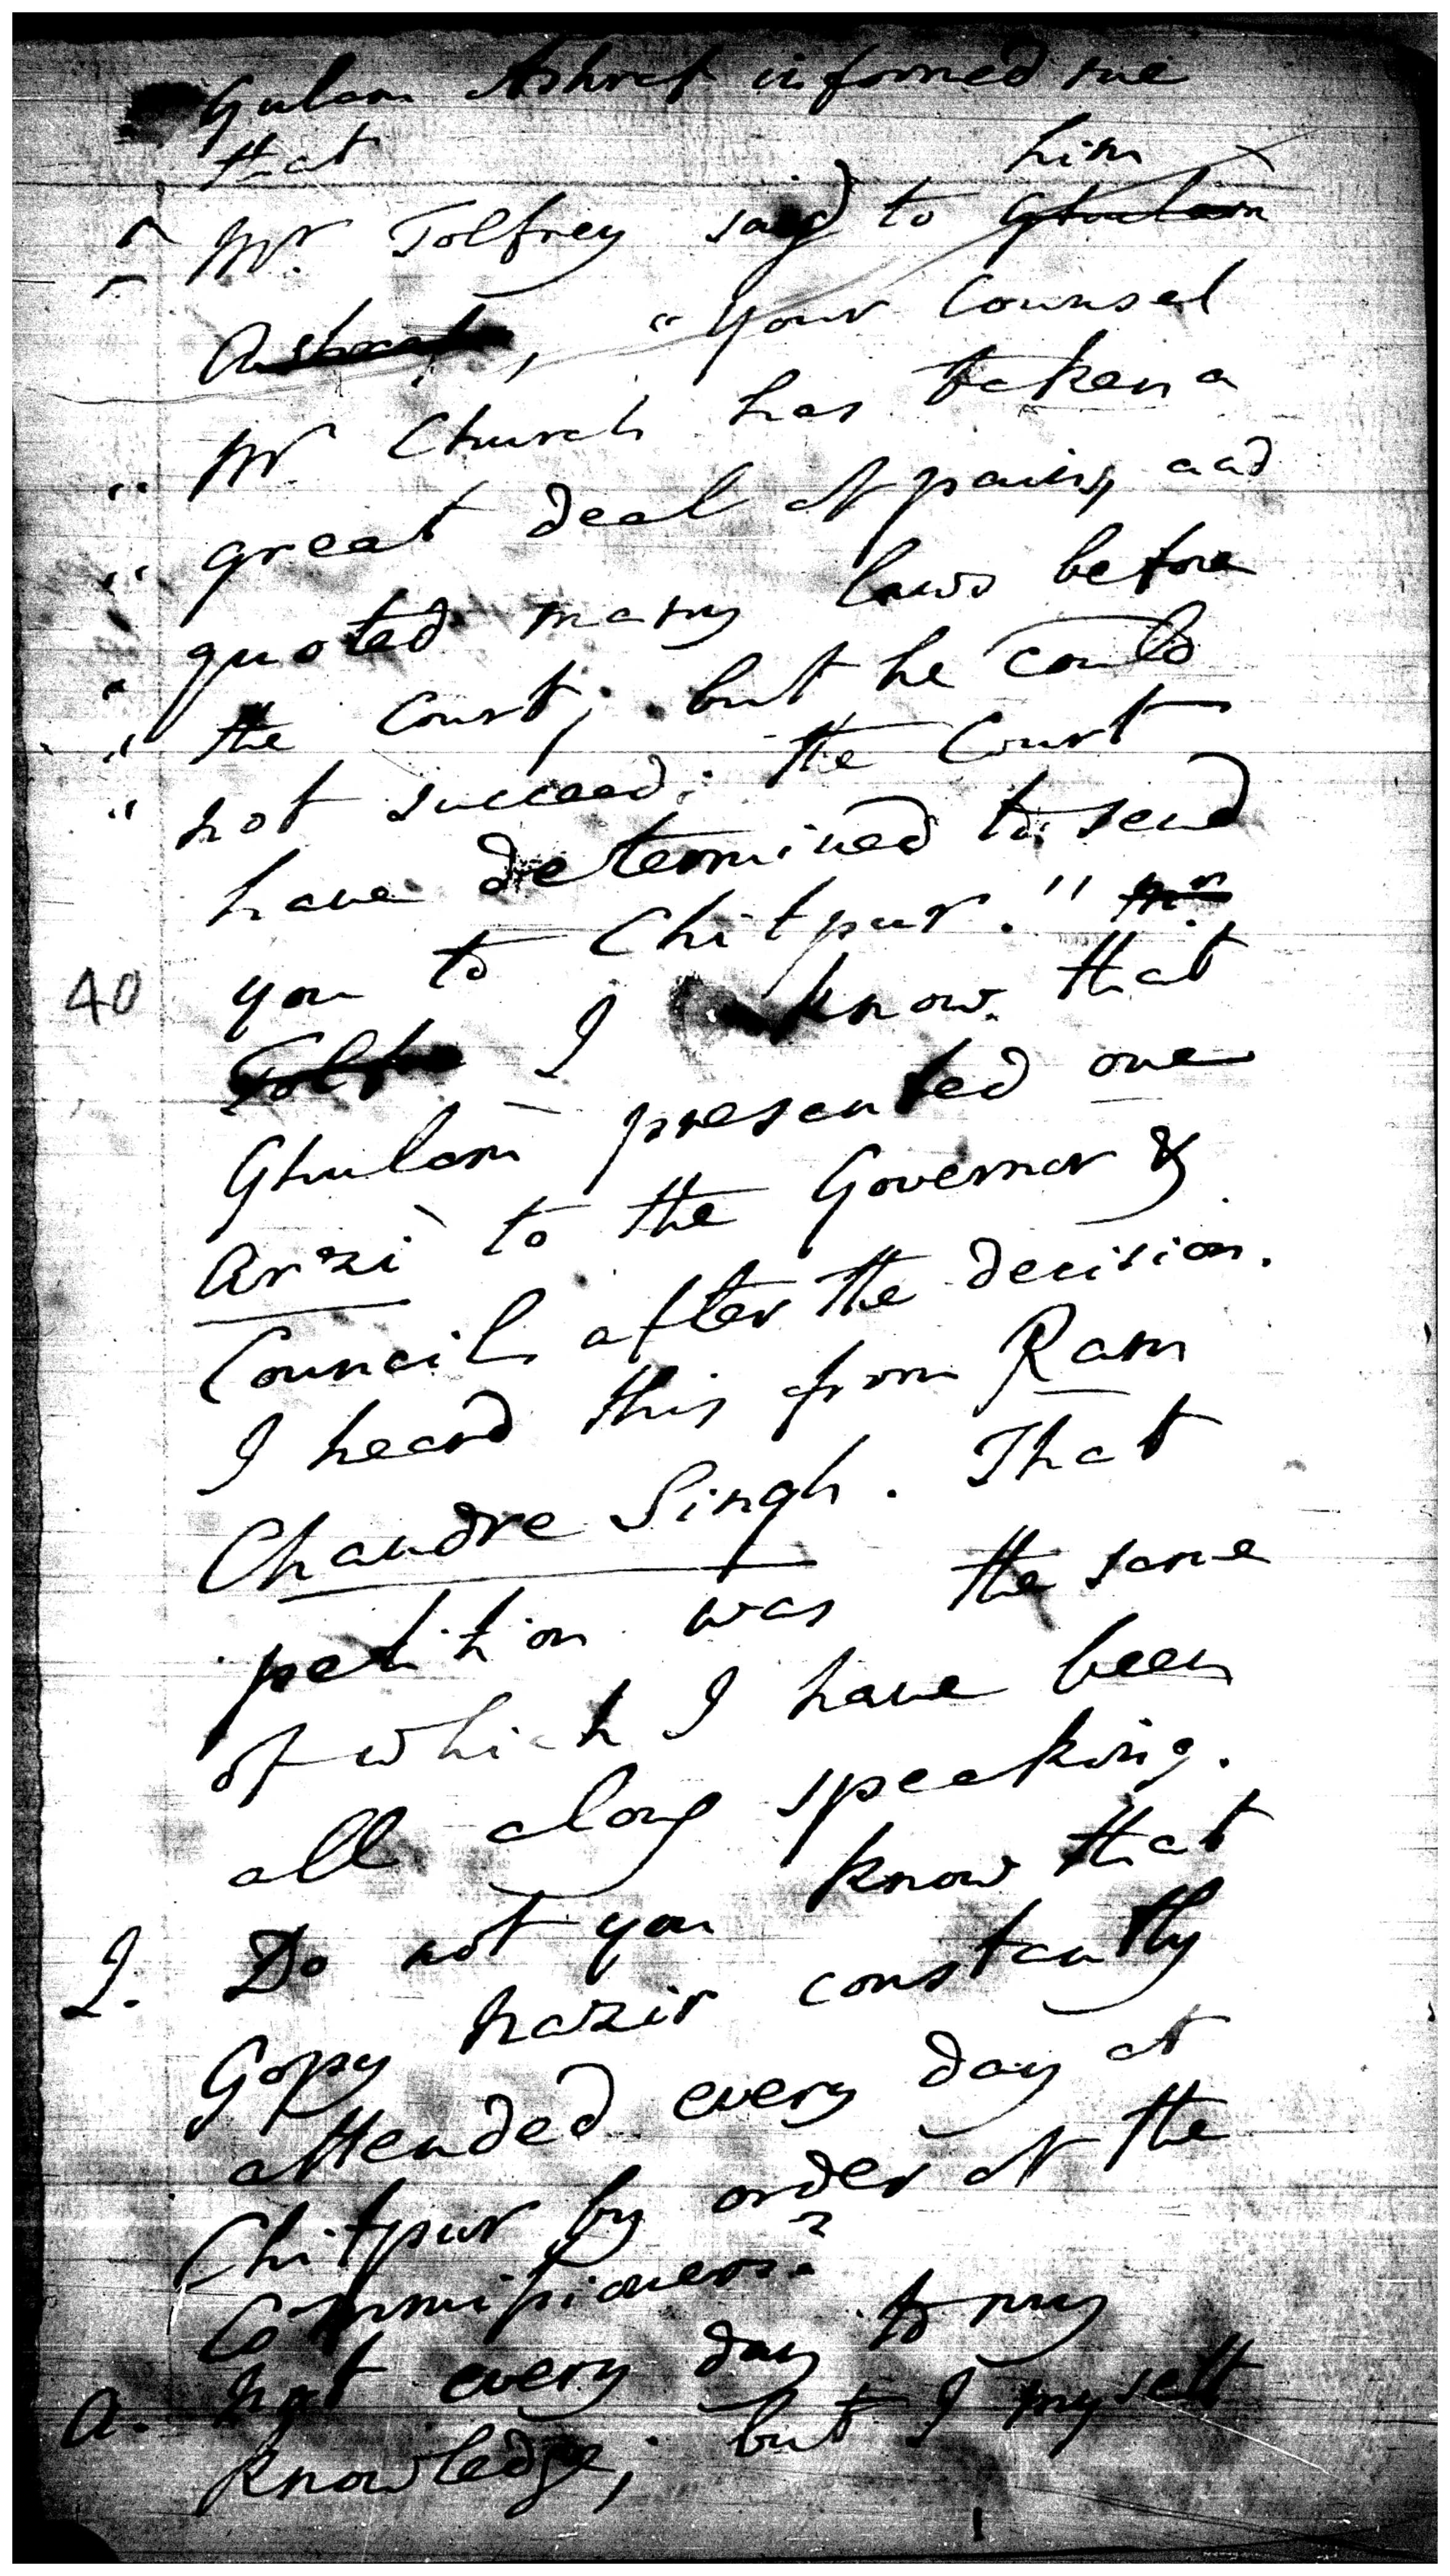 Gulam Ashraf informed me
that
him
Mr. Tolfrey said to Ghulam
Ashraf, "Your Counsel
Mr. Church has taken a
" great deal of pains, and
" quoted many laws before
" the Court; but he could
" not succeed; the Court
" have determined to send
you to Chitpur." Mr.
40
Tolfre I know that
Ghulam presented one
Arzi to the Governor &
Council after the decision.
I heard this from Ram
Chandra Singh. That
petition was the same
of which I have been
all along speaking.
Q. Do not you know that
Gopy nazir constantly
attended every day at
Chitpur by order of the
Commissioners?
A. Not every day to my
knowledge; but I myself